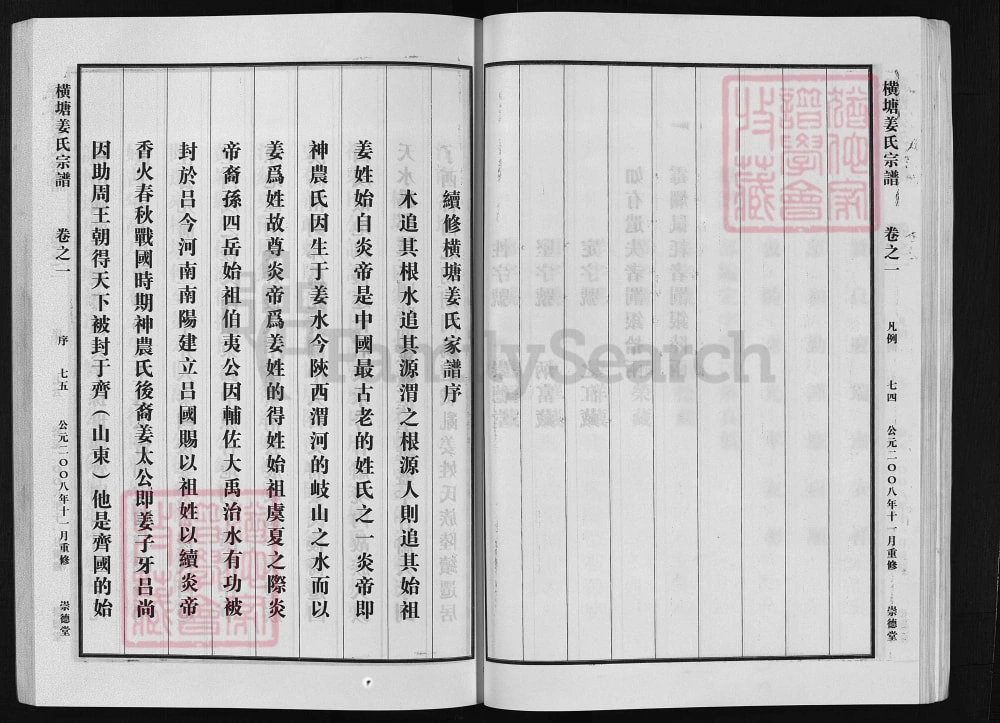 橫塘姜氏宗譜
卷之一
凡例
七四
公元二〇〇八年十一月重修
崇德堂
續修橫塘姜氏家譜序
木追其根水追其源渭之根源人則追其始祖
姜姓始自炎帝是中國最古老的姓氏之一炎帝即
神農氏因生于姜水今陝西渭河的岐山之水而以
姜爲姓故尊炎帝爲姜姓的得姓始祖虞夏之際炎
帝裔孫四岳始祖伯夷公因輔佐大禹治水有功被
封於吕今河南南陽建立吕國賜以祖姓以續炎帝
香火春秋戰國時期神農氏後裔姜太公即姜子牙吕尚
因助周王朝得天下被封于齊(山東)他是齊國的始
橫塘姜氏宗譜
卷之一
序
七五
公元二〇〇八年十一月重修
崇德堂
FamilySearch